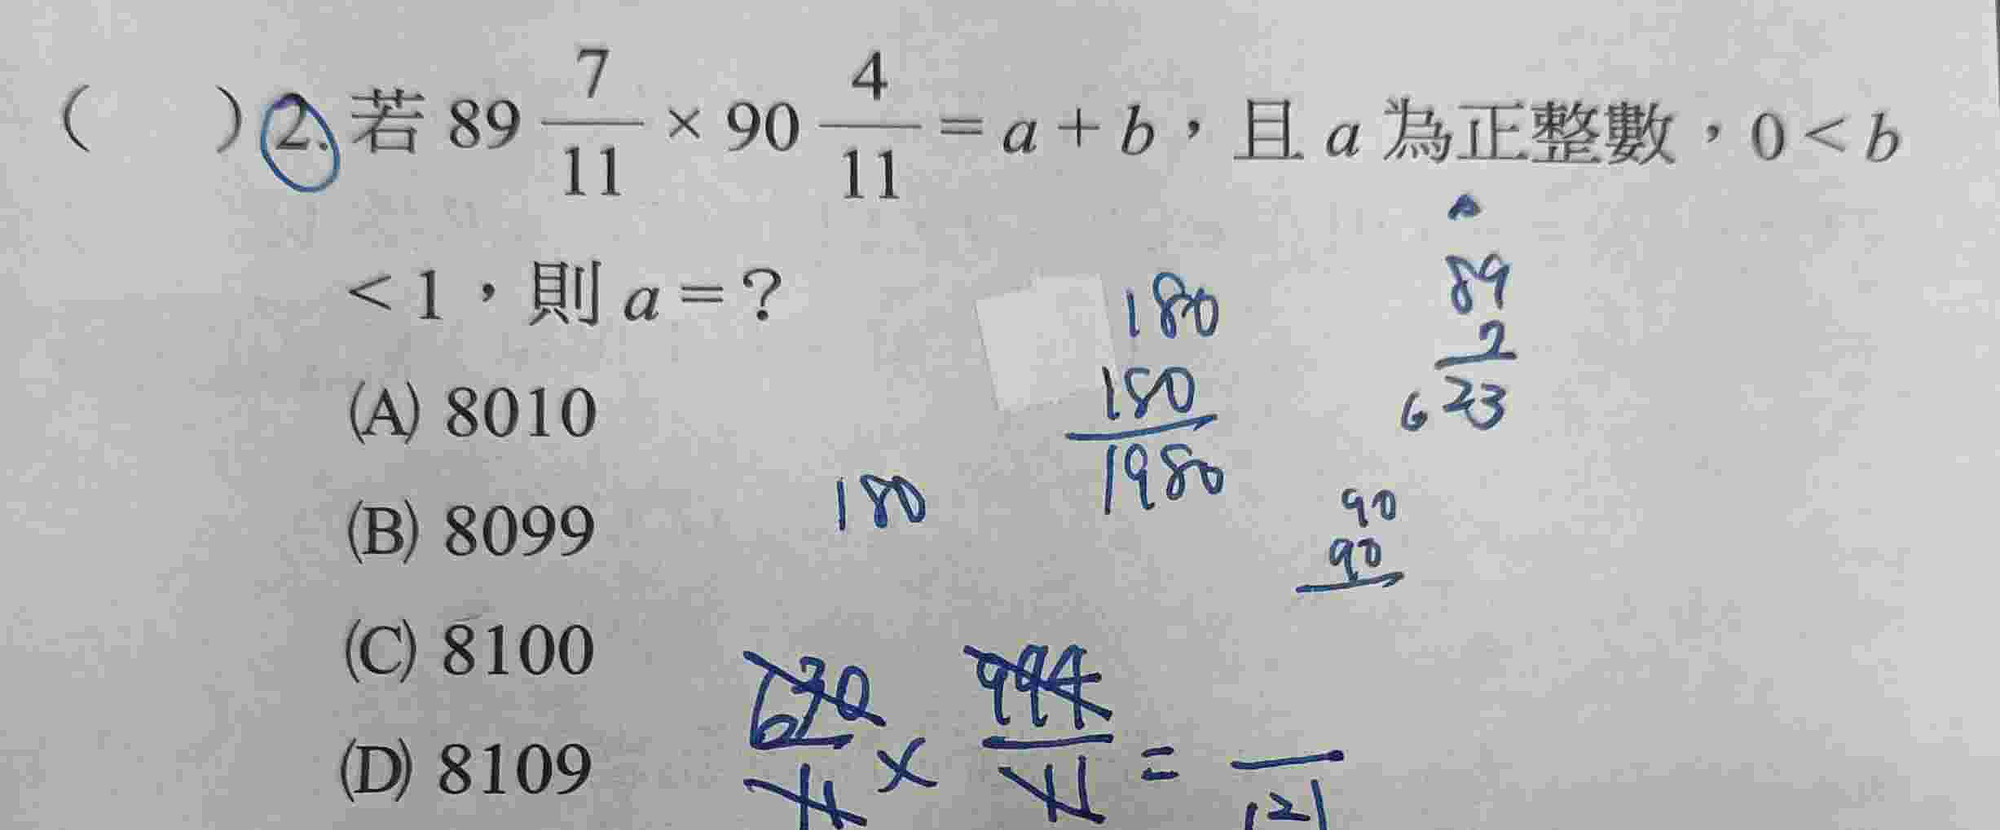 (　　)2. 若 89 7/11 × 90 4/11 = a + b，且 a 為正整數，0 < b
< 1，則 a = ?
(A) 8010
(B) 8099
(C) 8100
(D) 8109
180
180
180
1980
89
2
623
90
90
630/11 × 994/11 = /121